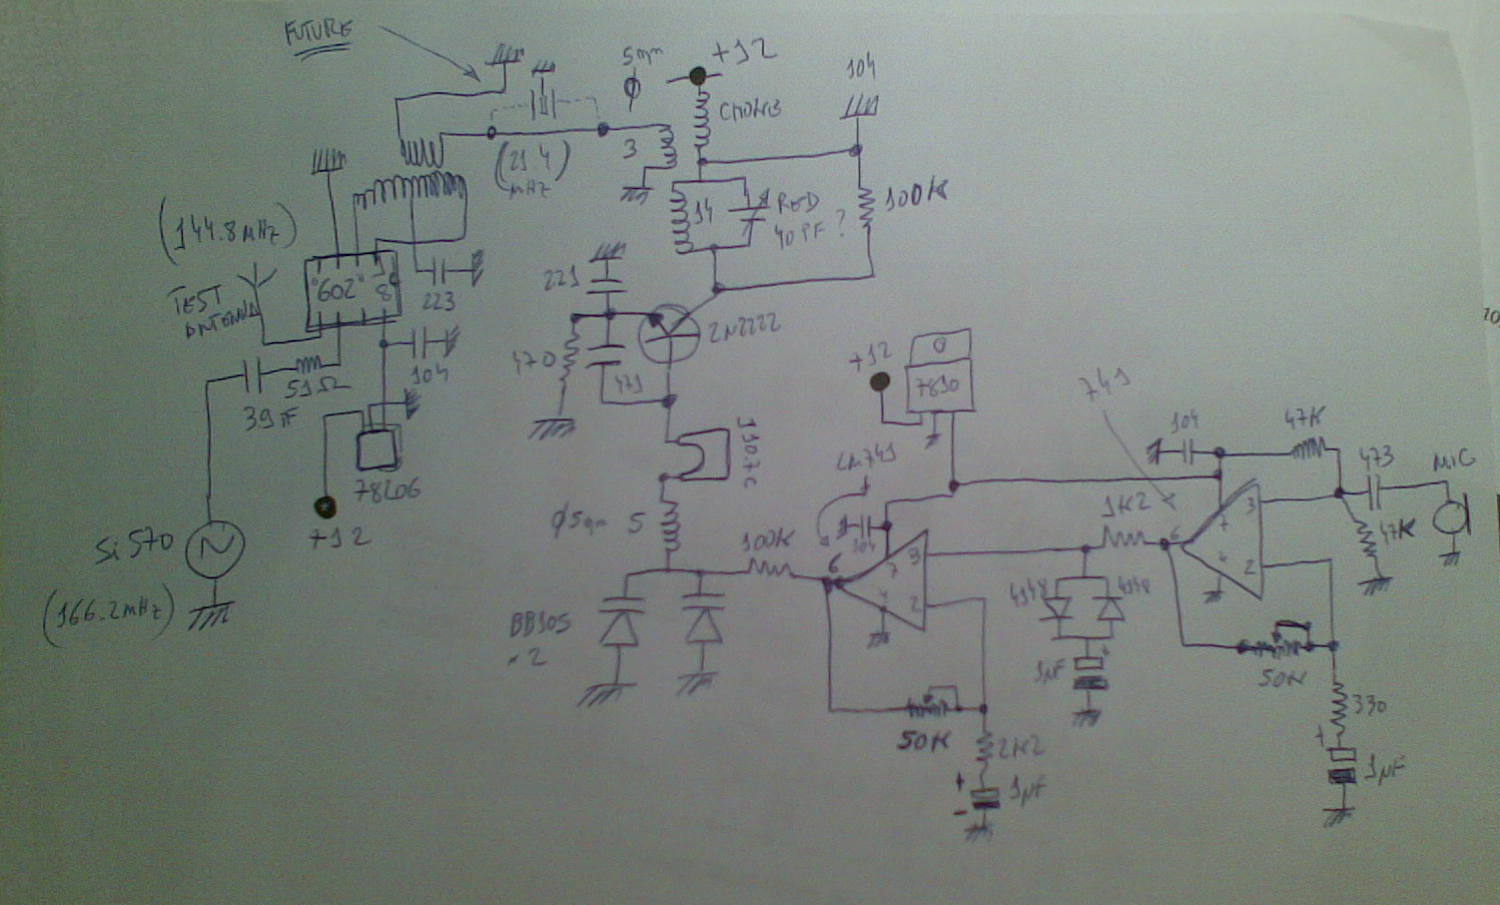 FUTURE
5mm
Ø
+12
104
CHOKE
3
(21.4)
MHz
14
RED
40PF ?
100K
(144.8MHz)
TEST
ANTENNA
"602"
8
223
104
51Ω
39PF
78L06
+12
Si570
(166.2MHz)
221
470
471
2N2222
Ø5mm
5
BB105
x2
100K
+12
7810
LM741
104
6
7
4
3
2
50K
2K2
+
-
1µF
741
104
47K
473
MIC
47K
1K2
6
7
4
3
2
4148
4148
1µF
+
50K
330
+
1µF